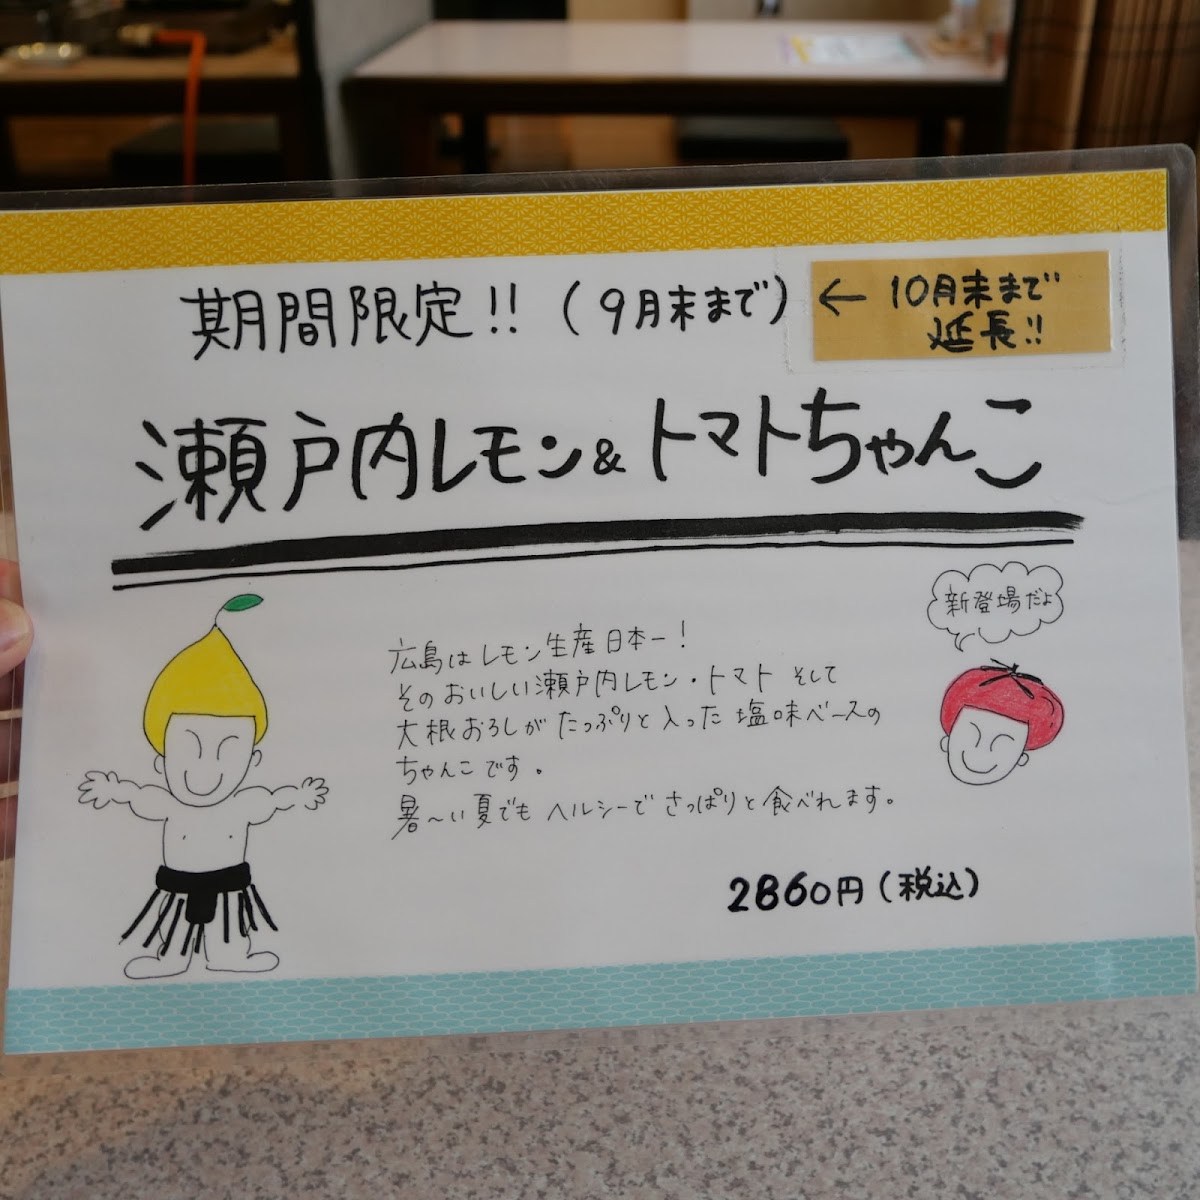 期間限定!!(9月末まで)
← 10月末まで
延長!!
瀬戸内レモン&トマトちゃんこ
新登場だよ
広島はレモン生産日本一!
そのおいしい瀬戸内レモン・トマト そして
大根おろしがたっぷりと入った塩味ベースの
ちゃんこです。
暑〜い夏でもヘルシーでさっぱりと食べれます。
2860円(税込)